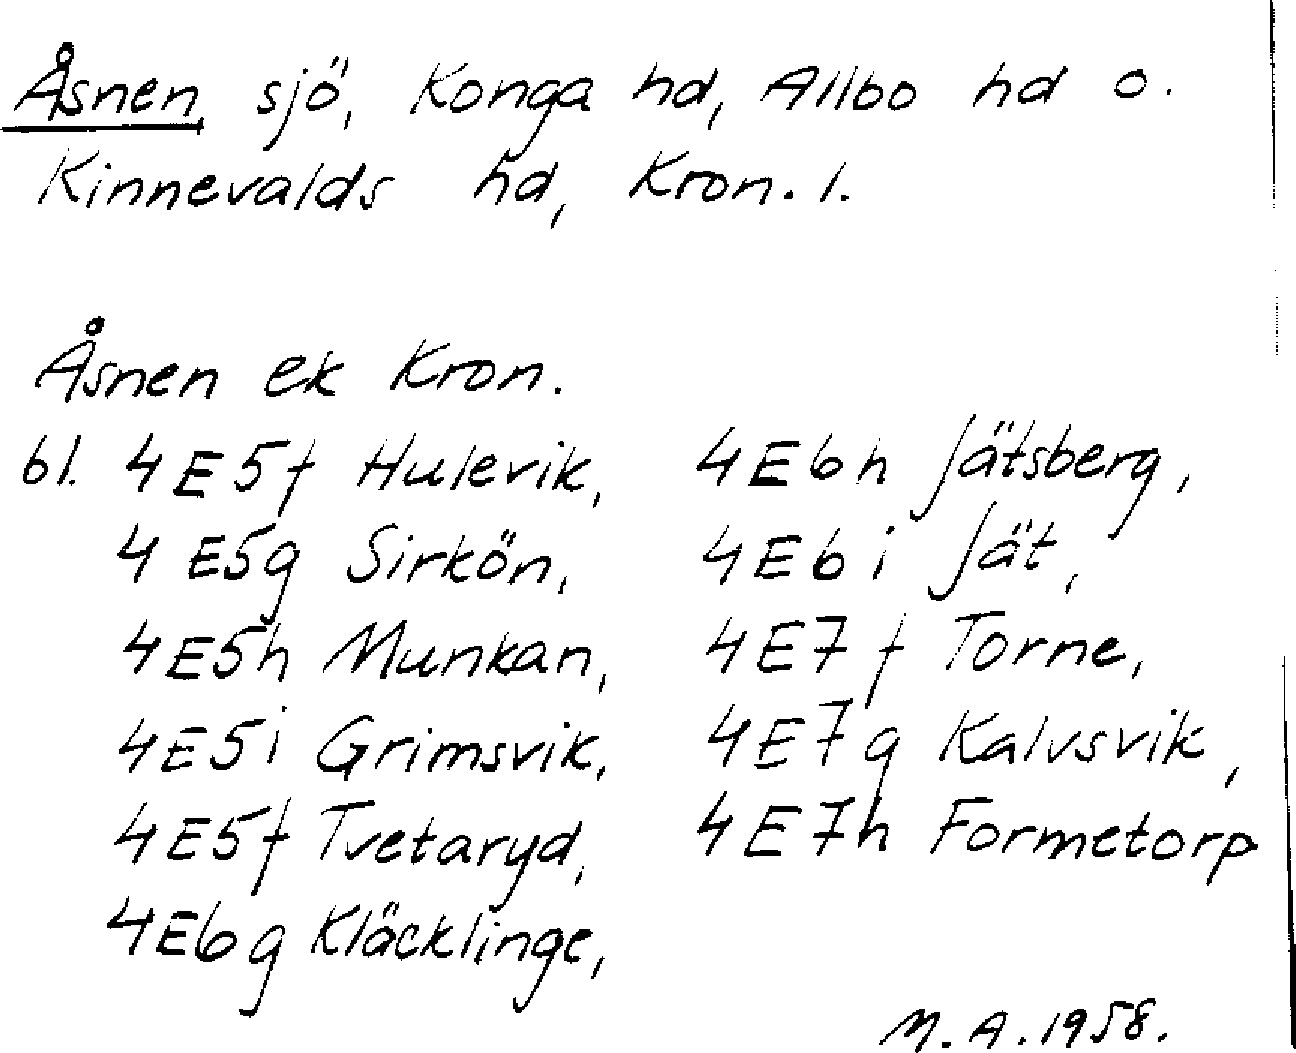 Åsnen, sjö, Konga hd, Allbo hd o.
Kinnevalds hd, Kron. l.
Åsnen ek Kron.
bl. 4E5f Hulevik,
4E5g Sirkön,
4E5h Munkan,
4E5i Grimsvik,
4E5f Tvetaryd,
4E6g Kläcklinge,
4E6h Jätsberg,
4E6i Jät,
4E7f Torne,
4E7g Kalvsvik,
4E7h Formetorp
M.A. 1958.